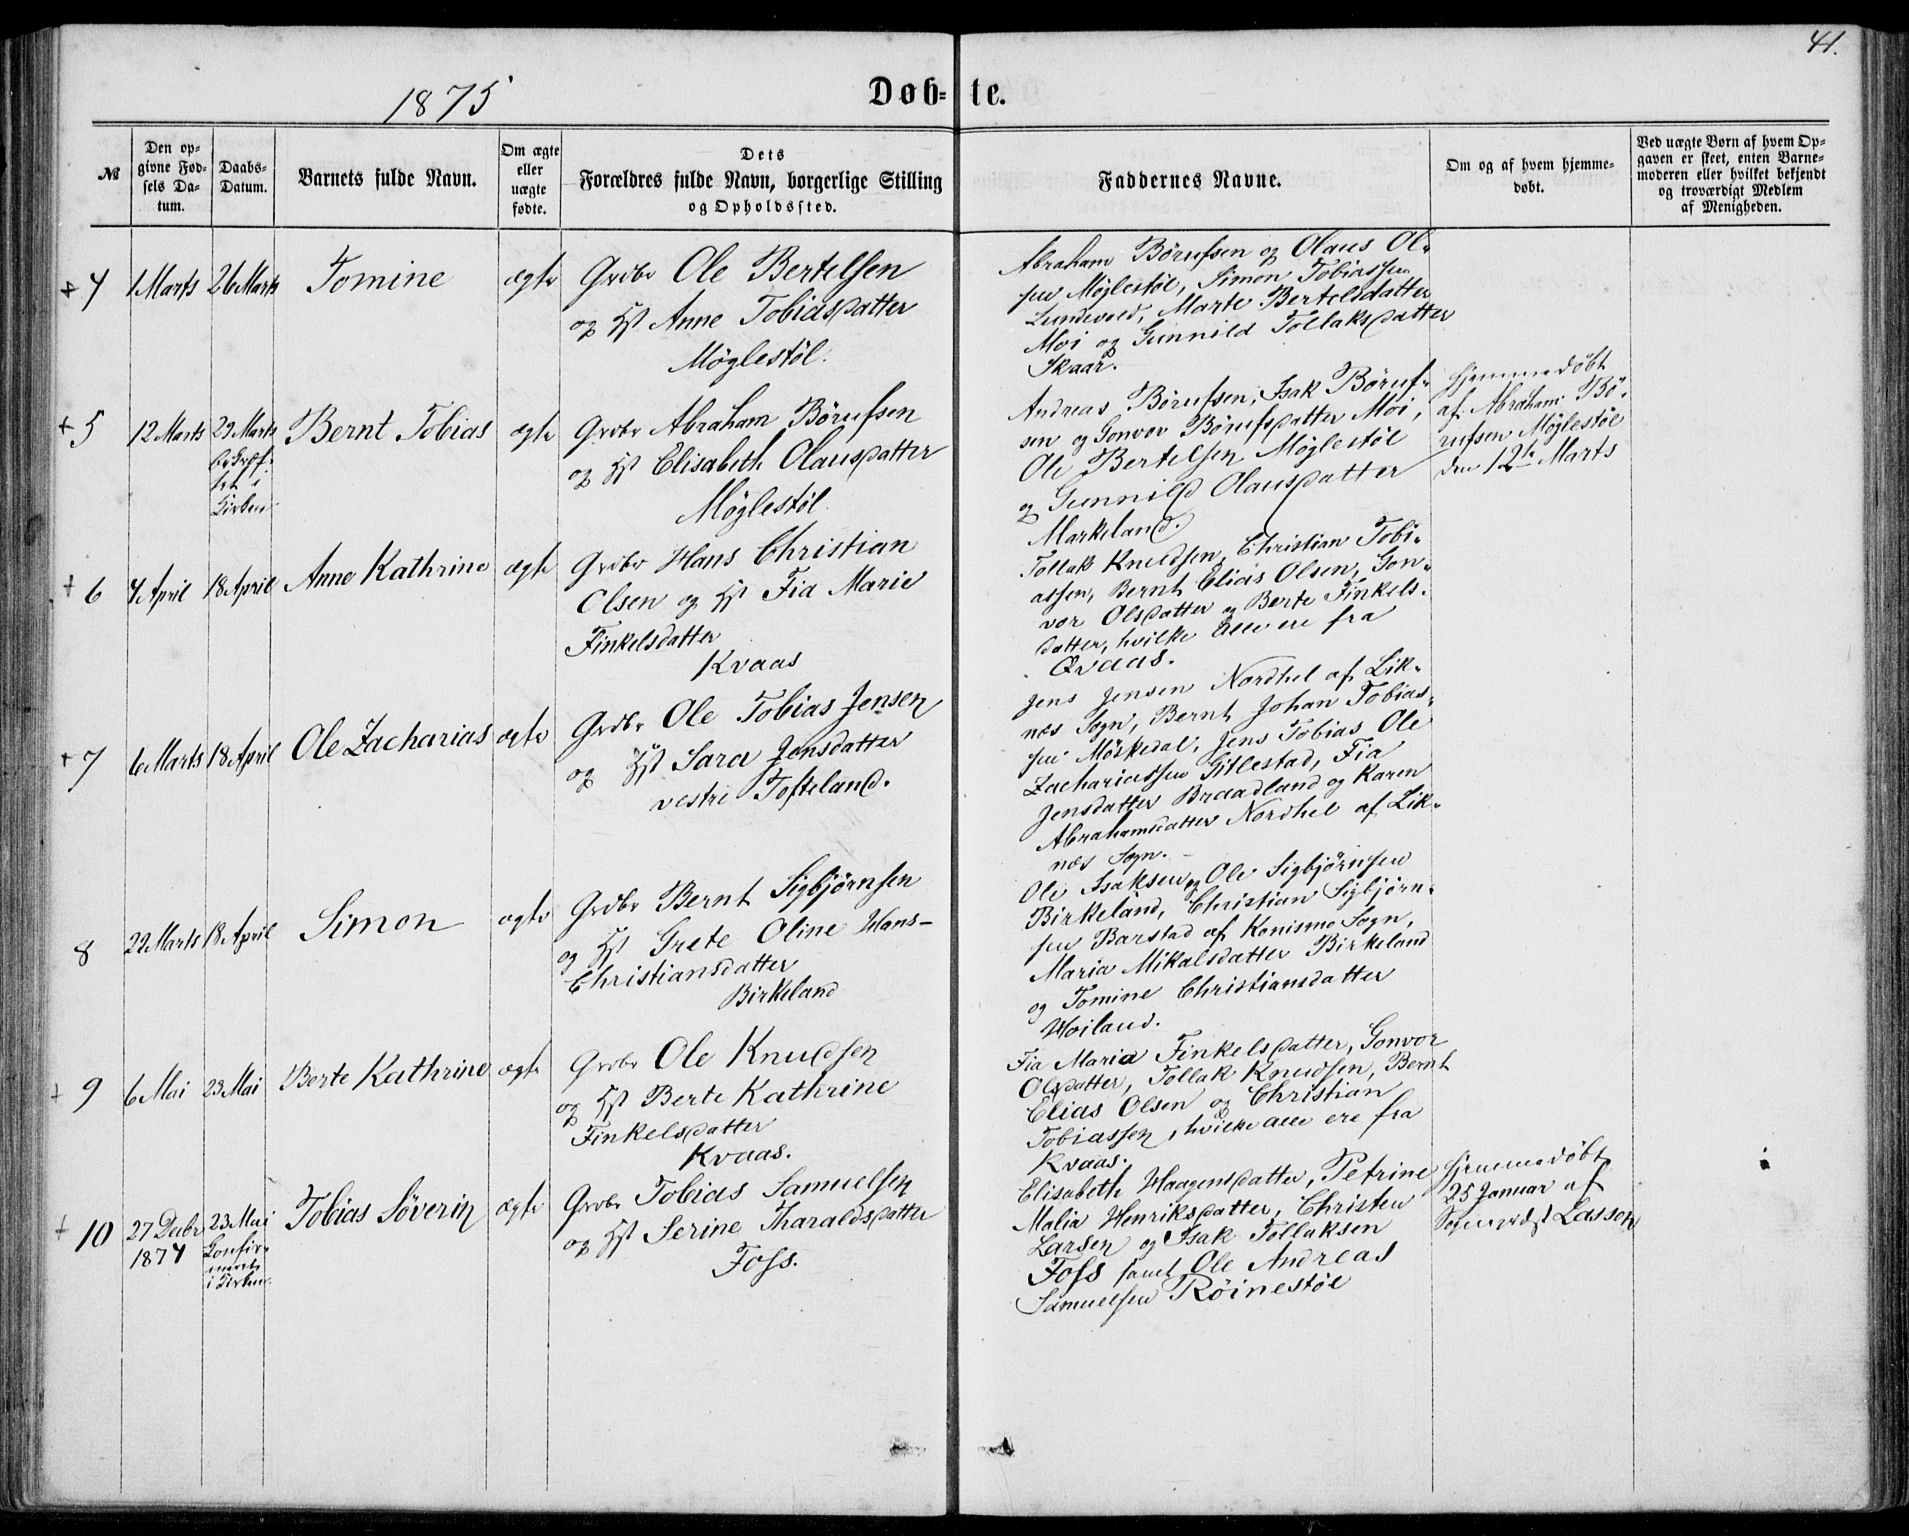 41.
1875
Døb- te.
№
Den op-
givne Fød-
sels Da-
tum.
Daabs-
Datum.
Barnets fulde Navn.
Om ægte
eller
uægte
fødte.
Dets
Forældres fulde Navn, borgerlige Stilling
og Opholdssted.
Faddernes Navne.
Om og af hvem hjemme-
døbt.
Ved uægte Børn af hvem Op-
gaven er skeet, enten Barne-
moderen eller hvilket bekjendt
og troværdigt Medlem
af Menigheden.
+ 4
1 Marts
26 Marts
Tomine
ægte
Grdbr Ole Bertelsen
og Hst Anne Tobiasdatter
Møglestøl.
Abraham Børufsen og Olaus Ol-
sen Møglestøl, Simon Tobiassen
Lundevold, Marte Bertelsdatter
Moi og Gunnild Tollaksdatter
Skaar.
+ 5
12 Marts
29 Marts
i
Kirken
Bernt Tobias
ægte
Grdbr Abraham Børufsen
og Hst Elisabeth Olausdatter
Møglestøl.
Andreas Børufsen, Isak Børuf-
sen og Gonvor Børufsdatter Moi,
Ole Bertelsen Møglestøl
og Gunnild Olausdatter
Markeland.
Hjemmedøbt
af Abraham Bø-
rufsen Møglestøl
den 12te Marts
+ 6
4 April
18 April
Anne Kathrine
ægte
Grdbr Hans Christian
Olsen og Hst Fia Marie
Finkelsdatter
Kvaas
Tollak Knudsen, Christian Tobi-
assen, Bernt Elias Olsen, Gon-
vor Olsdatter og Berte Finkels-
datter, hvilke alle ere fra
Qvaas.
+ 7
6 Marts
18 April
Ole Zacharias
ægte
Grdbr Ole Tobias Jensen
og Hst Sara Jensdatter
vestre Tofteland.
Jens Jensen Nordhel af Lik-
næs Sogn, Bernt Johan Tobias-
sen Møskedal, Jens Tobias Ole
Zachariassen Gitlestad, Fia
Jensdatter Braadland og Karen
Abrahamsdatter Nordhel af Lik-
næs Sogn.
8
22 Marts
18 April
Simon
ægte
Grdbr Bernt Sigbjørnsen
og Hst Grete Oline Hans-
Christiansdatter
Birkeland
Ole Isaksen og Ole Sigbjørnsen
Birkeland, Christian Sigbjørn-
sen Barstad af Konismo Sogn,
Maria Mikalsdatter Birkeland
og Tomine Christiansdatter
Hoiland.
+ 9
6 Mai
23 Mai
Berte Kathrine
ægte
Grdbr Ole Knudsen
og Hst Berte Kathrine
Finkelsdatter
Kvaas.
Fia Maria Finkelsdatter, Gonvor
Olsdatter, Tollak Knudsen, Bernt
Elias Olsen og Christian
Tobiassen, hvilke alle ere fra
Kvaas.
+ 10
27 Decbr
1874
23 Mai
i Kirken.
Tobias Søverin
ægte
Grdbr Tobias Samuelsen
og Hst Serine Tharaldsdatter
Foss.
Elisabeth Haagensdatter, Petrine
Malia Henriksdatter, Christen
Larsen og Isak Tollaksen
Foss samt Ole Andreas
Samuelsen Røinestøl
Hjemmedøbt
25 Januar af
Sogneprest Lasson